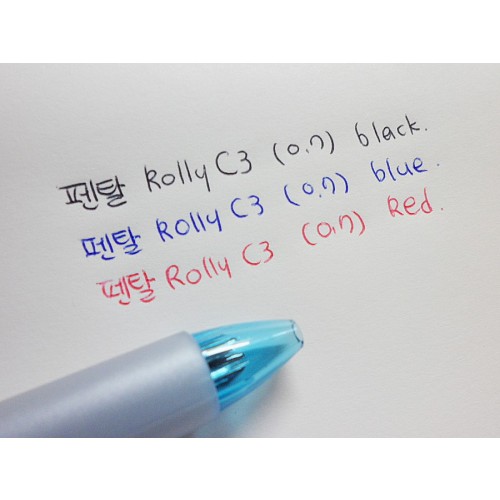 펜탈 Rolly C3 (0.7) black.
펜탈 Rolly C3 (0.7) blue.
펜탈 Rolly C3 (0.7) Red.